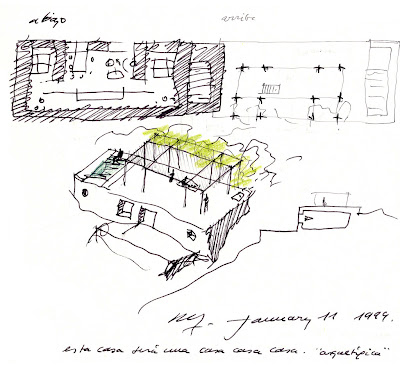 abajo
arriba
January 11 1994.
esta casa será una casa casa casa. "arquetípica"